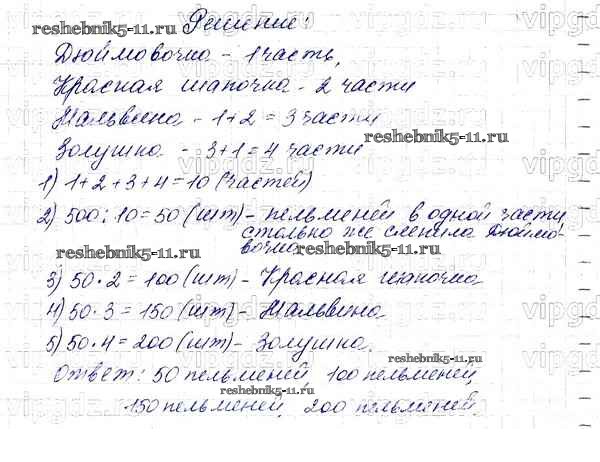 Решение:
Дюймовочка - 1 часть,
Красная шапочка - 2 части
Мальвина - 1+2=3 части
Золушка - 3+1=4 части
1) 1+2+3+4=10 (частей)
2) 500:10=50 (шт) - пельменей в одной части,
столько же слепила Дюймо-
вочка
3) 50·2=100 (шт) - Красная шапочка
4) 50·3=150 (шт) - Мальвина
5) 50·4=200 (шт) - Золушка.
Ответ: 50 пельменей, 100 пельменей,
150 пельменей, 200 пельменей
reshebnik5-11.ru
reshebnik5-11.ru
reshebnik5-11.ru
reshebnik5-11.ru
reshebnik5-11.ru
reshebnik5-11.ru
vipgdz.ru